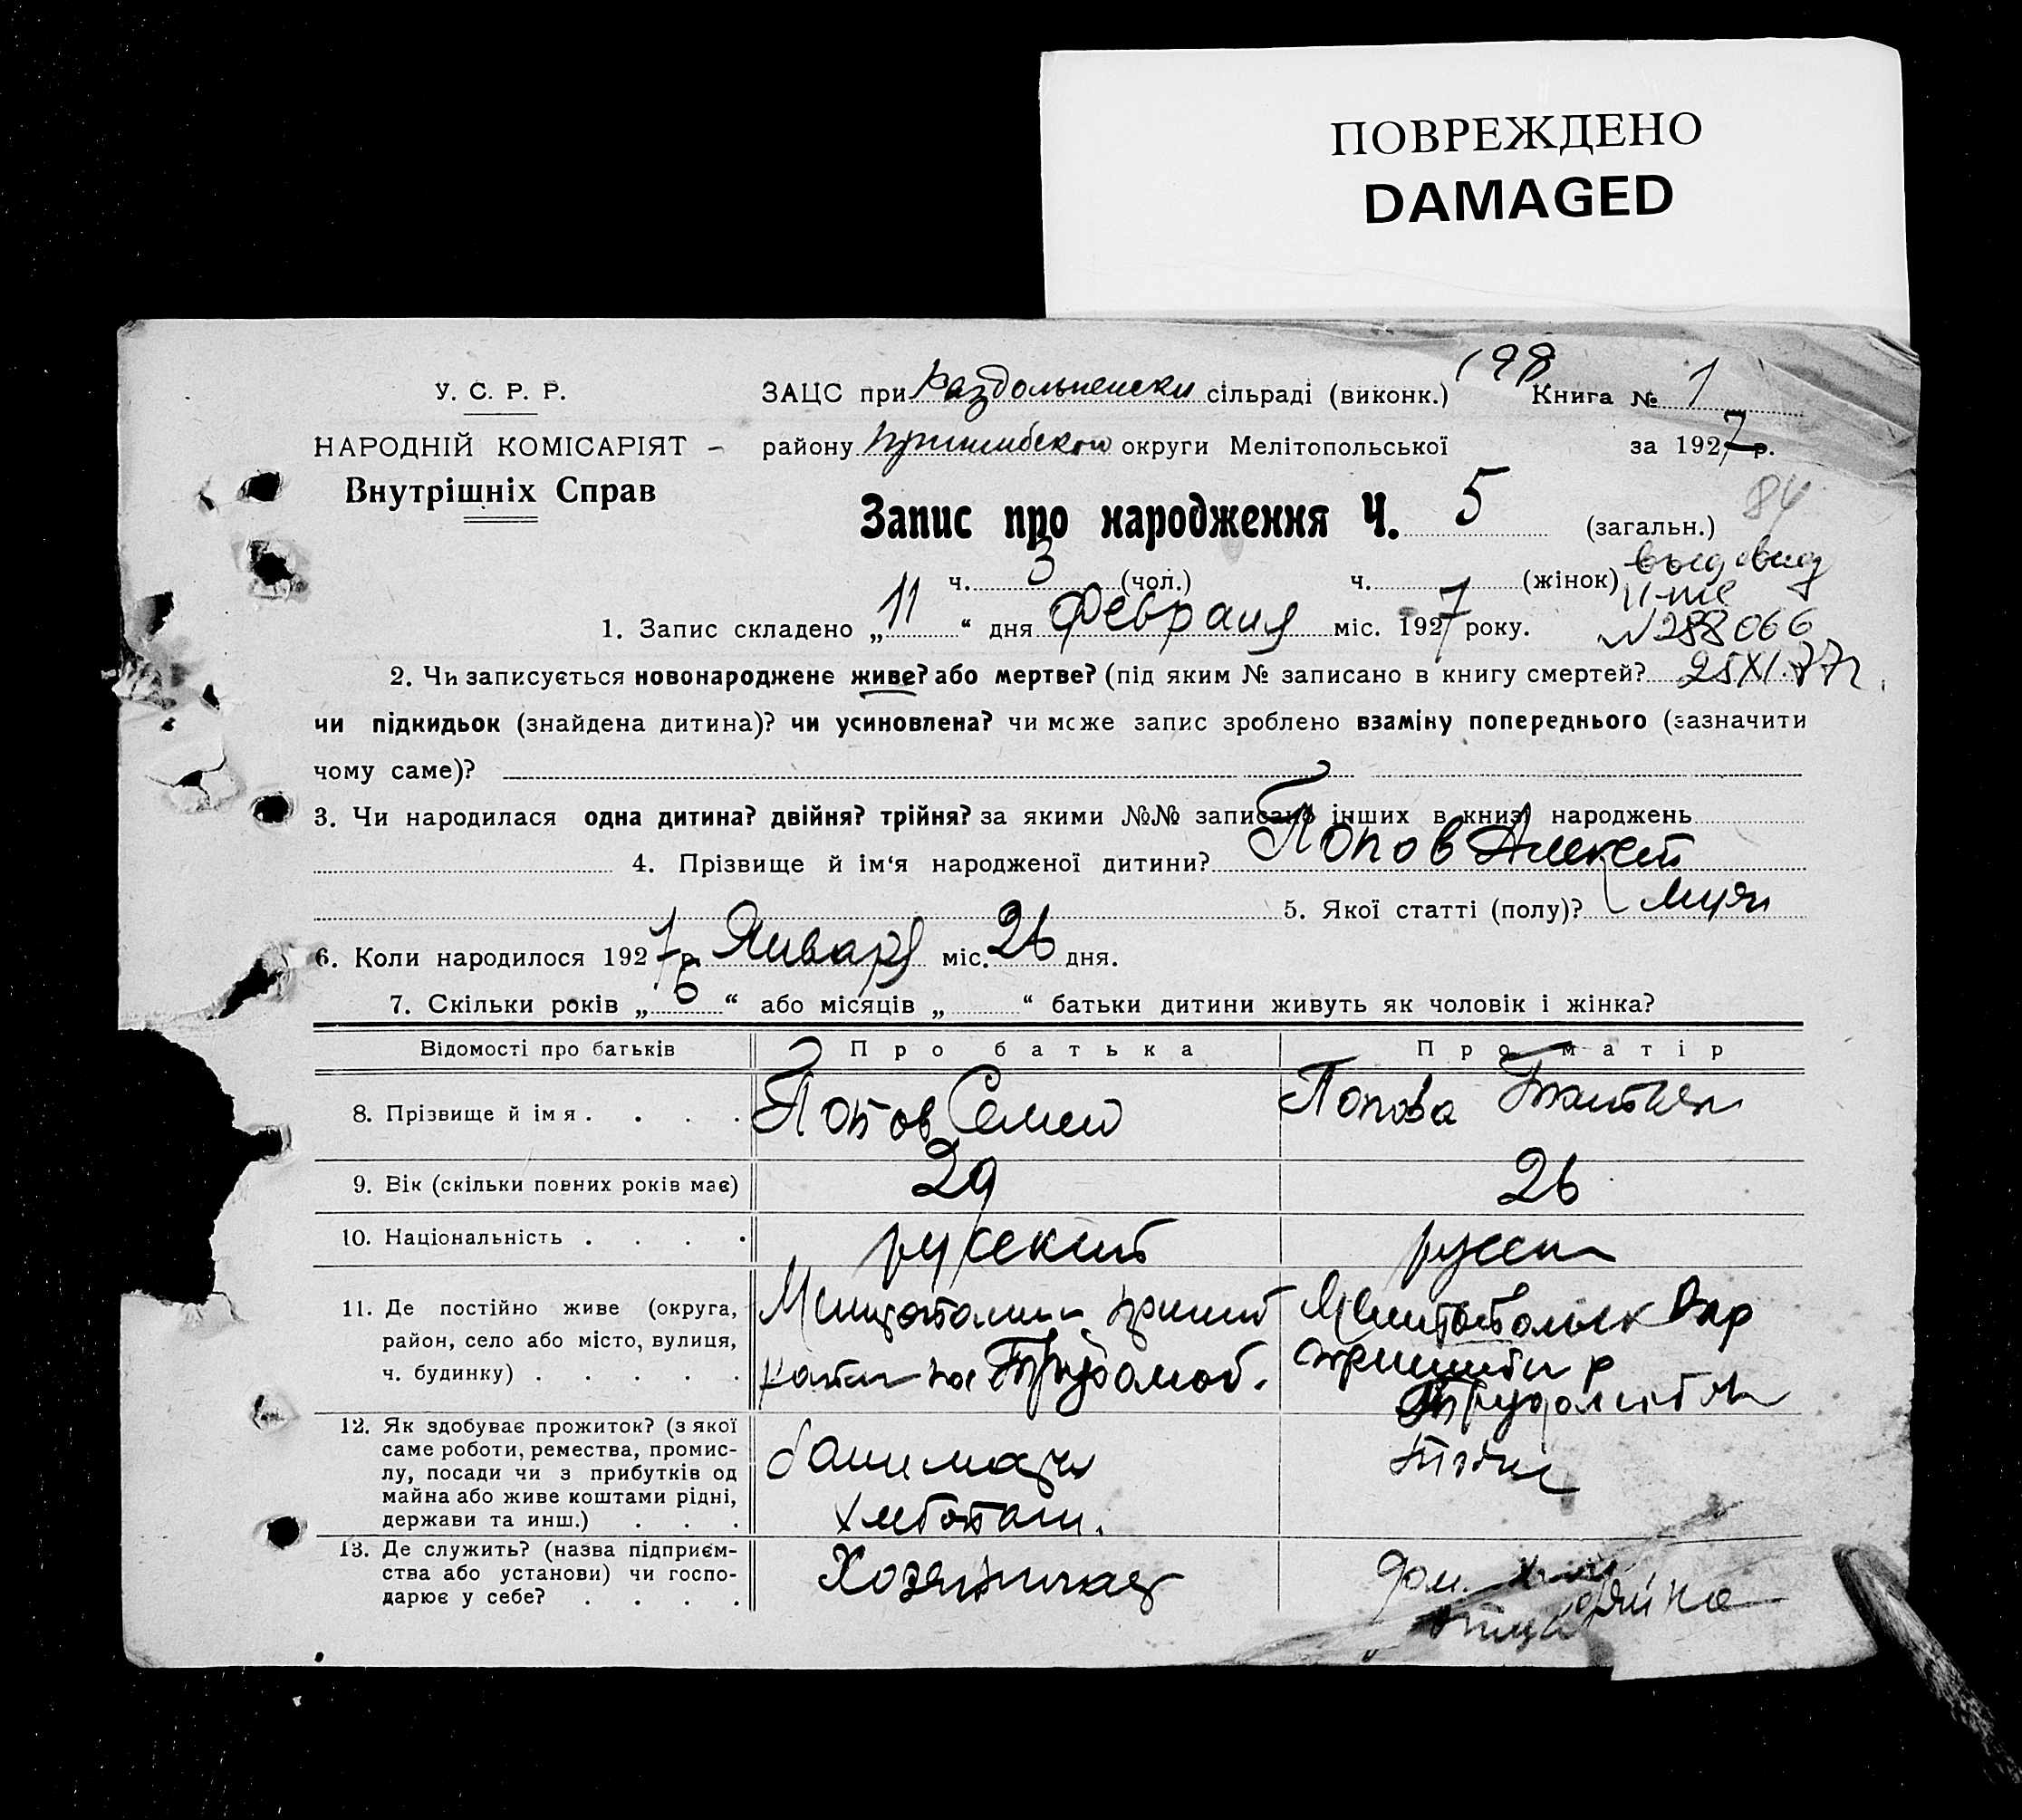 ПОВРЕЖДЕНО
DAMAGED
198
У. С. Р. Р. ЗАЦС при Раздольненски сільраді (виконк.) Книга № 1
НАРОДНІЙ КОМІСАРІЯТ району Пришибском округи Мелітопольської за 1927 р.
Внутрішніх Справ
Запис про народження Ч. 5 (загальн.) 84
ч. 3 (чол.) ч. (жінок)
1. Запис складено „ 11 “ дня Февраля міс. 1927 року. №288066
2. Чи записується новонароджене живе? або мертве? (під яким № записано в книгу смертей? 25 XI.77г.
чи підкидьок (знайдена дитина)? чи усиновлена? чи може запис зроблено взаміну попереднього (зазначити
чому саме)?
3. Чи народилася одна дитина? двійня? трійня? за якими №№ записано інших в книзі народжень
4. Прізвище й ім‘я народженої дитини? Попов Алексей
5. Якої статті (полу)? Муж
6. Коли народилося 1927 р. Января міс. 26 дня.
7. Скільки років „ 6 “ або місяців „ “ батьки дитини живуть як чоловік і жінка?
Відомості про батьків Про батька Про матір
8. Прізвище й імя . . . . Попов Семен Попова Татьян
9. Вік (скільки повних років має) 29 26
10. Національність . . . . русский русск
11. Де постійно живе (округа,
район, село або місто, вулиця,
ч. будинку) . . . . .
12. Як здобуває прожиток? (з якої
саме роботи, ремества, промис-
лу, посади чи з прибутків од
майна або живе коштами рідні,
держави та инш.) . . .
13. Де служить? (назва підприєм-
ства або установи) чи госпо-
дарює у себе? . . . .
дом.